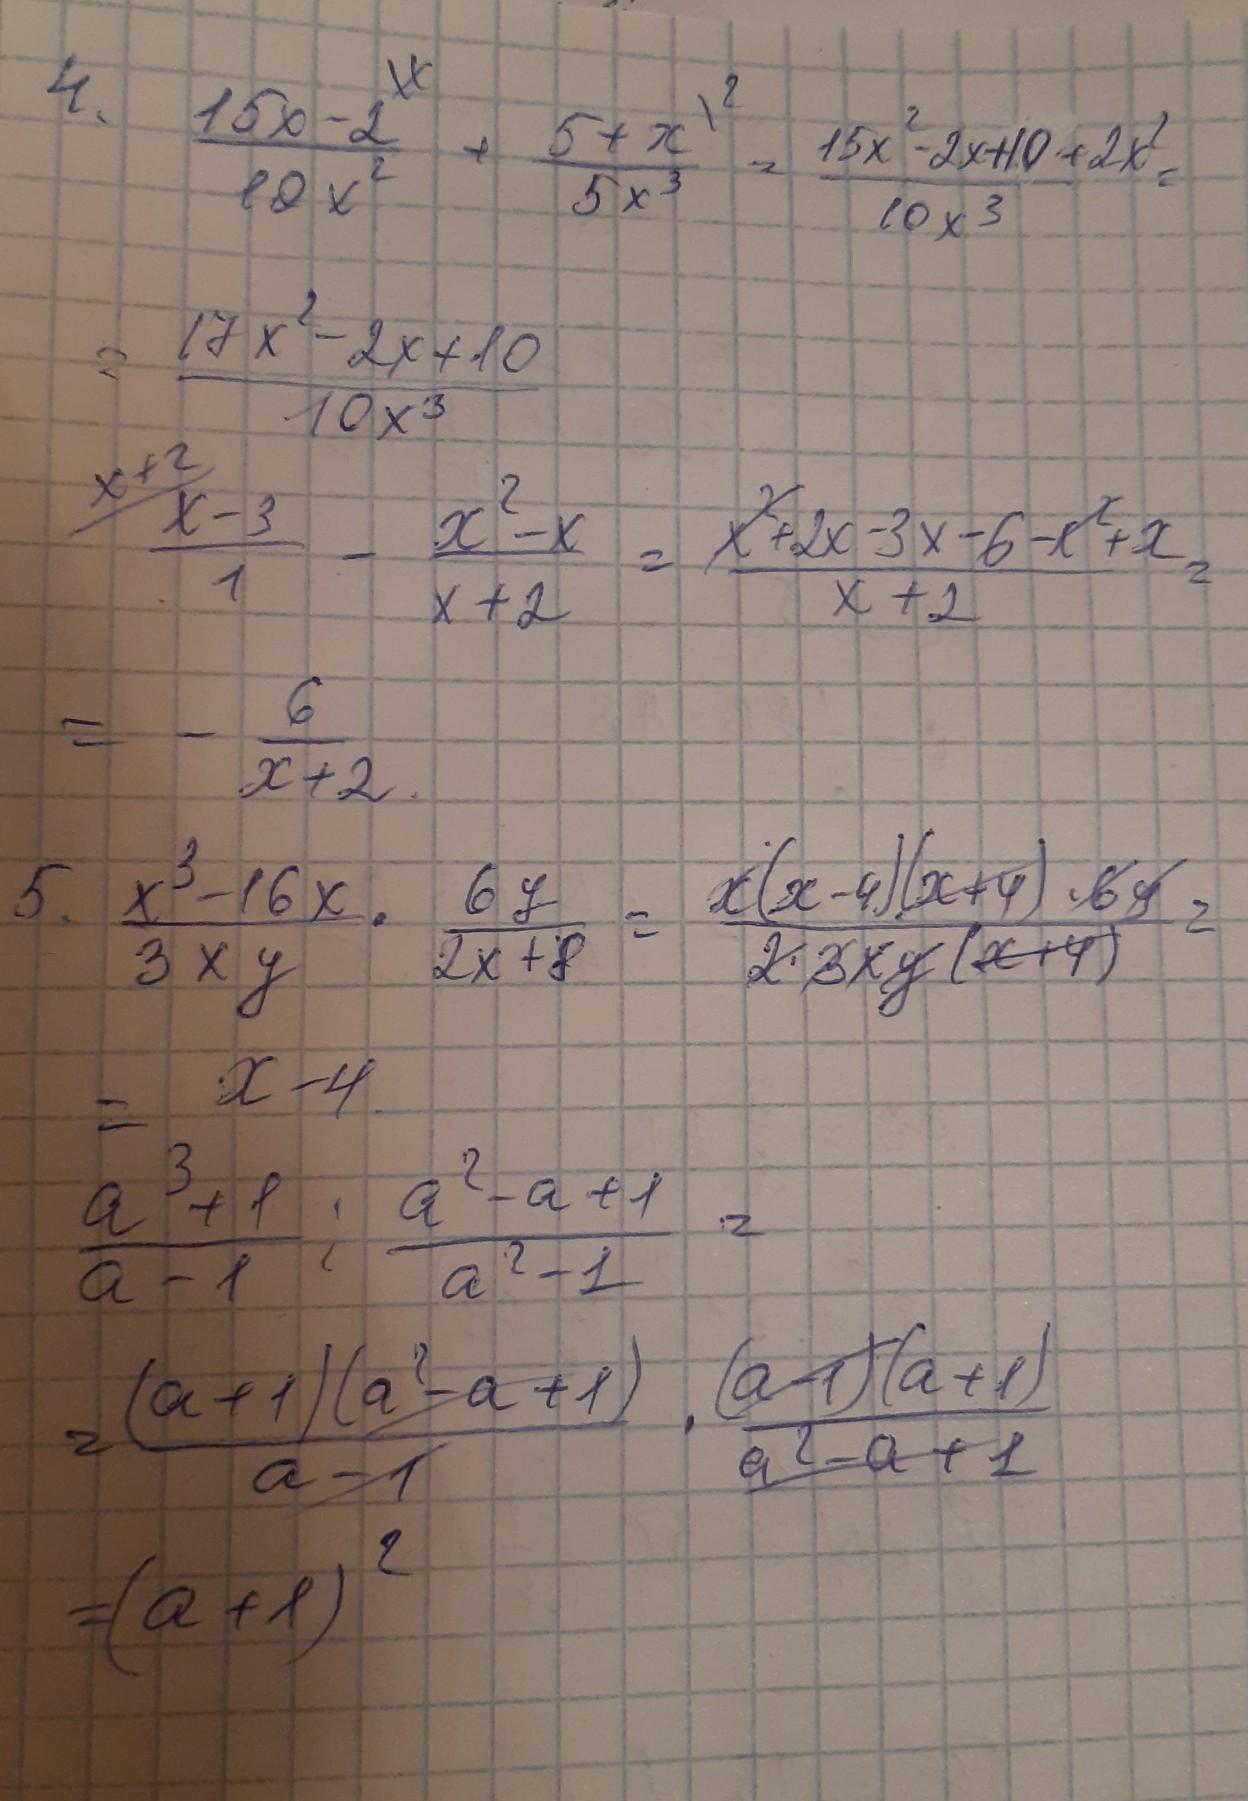 4. \frac{15x-2^{\backslash x}}{10x^2} + \frac{5+x^{\backslash 2}}{5x^3} = \frac{15x^2-2x+10+2x^2}{10x^3} =
= \frac{17x^2-2x+10}{10x^3}
^{x+2/} \frac{x-3}{1} - \frac{x^2-x}{x+2} = \frac{x^2+2x-3x-6-x^2+x}{x+2} =
= -\frac{6}{x+2}.
5. \frac{x^3-16x}{3xy} \cdot \frac{6y}{2x+8} = \frac{x(x-4)(x+4) \cdot 6y}{2 \cdot 3xy(x+4)} =
= x-4.
\frac{a^3+1}{a-1} : \frac{a^2-a+1}{a^2-1} =
= \frac{(a+1)(a^2-a+1)}{a-1} \cdot \frac{(a-1)(a+1)}{a^2-a+1}
= (a+1)^2